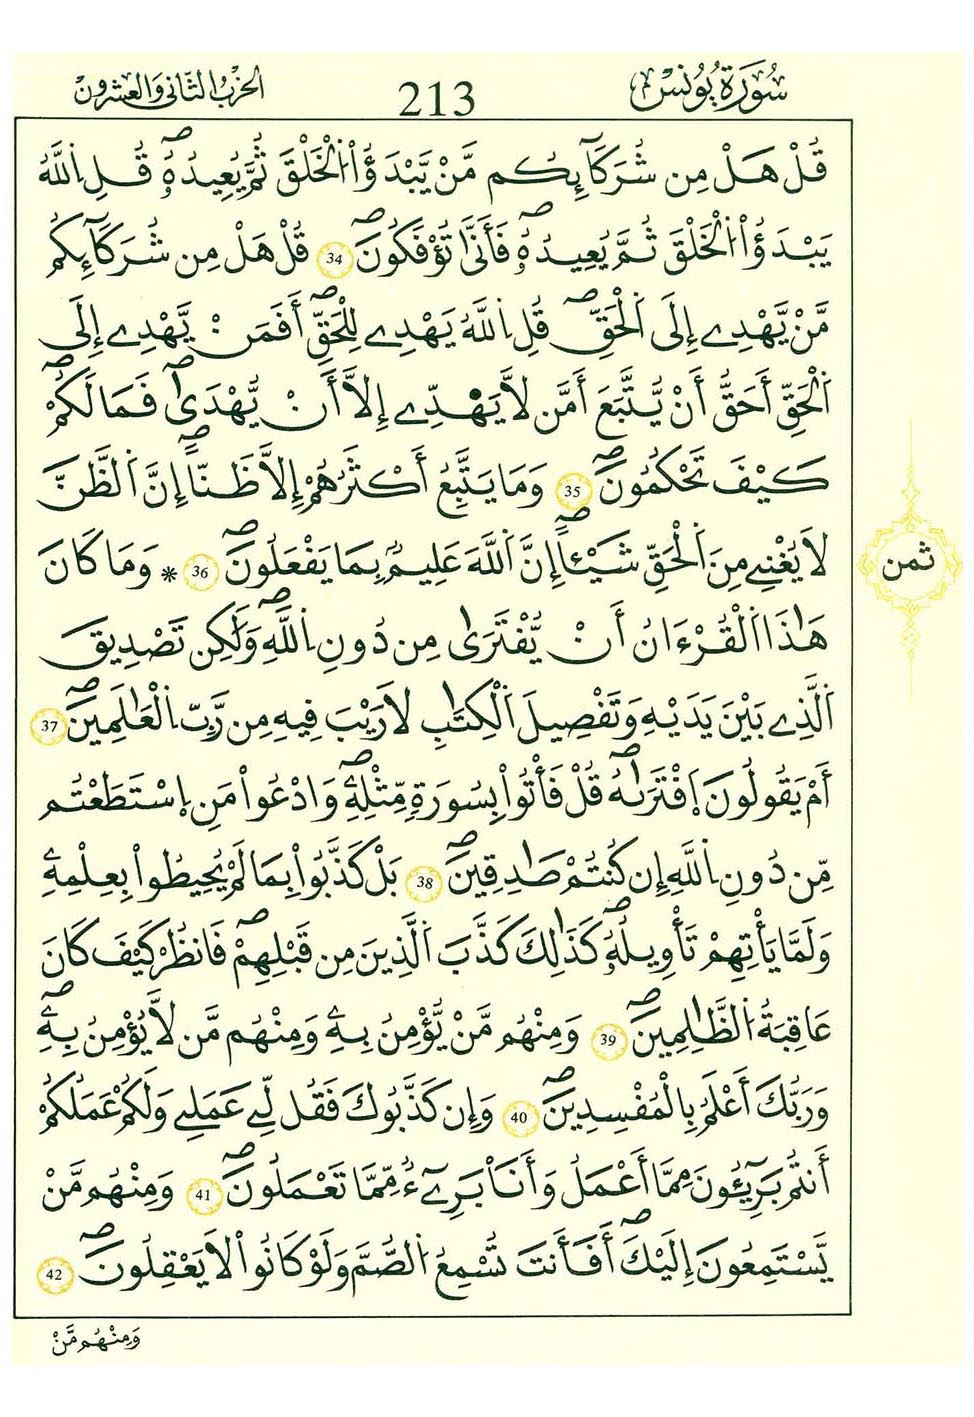 سُورَةُ يُونُسَ 213 الحزب الثاني والعشرون
قُلْ هَلْ مِن شُرَكَآئِكُم مَّنْ يَّبْدَؤُاْ اُ۬لْخَلْقَ ثُمَّ يُعِيدُهُۥۖ قُلِ اِ۬للَّهُ
يَبْدَؤُاْ اُ۬لْخَلْقَ ثُمَّ يُعِيدُهُۥۖ فَأَنَّىٰ تُؤْفَكُونَۖ 34 قُلْ هَلْ مِن شُرَكَآئِكُم
مَّنْ يَّهْدِےٓ إِلَى اَ۬لْحَقِّۖ قُلِ اِ۬للَّهُ يَهْدِے لِلْحَقِّۖ أَفَمَنْ يَّهْدِےٓ إِلَى
اَ۬لْحَقِّ أَحَقُّ أَنْ يُّتَّبَعَ أَمَّن لَّا يَهَدِّےٓ إِلَّآ أَنْ يُّهْد۪ىٰۖ فَمَا لَكُمْۖ
كَيْفَ تَحْكُمُونَۖ 35 وَمَا يَتَّبِعُ أَكْثَرُهُمْ إِلَّا ظَنّاًۖ إِنَّ اَ۬لظَّنَّ
لَا يُغْنِے مِنَ اَ۬لْحَقِّ شَيْـٔاًۖ إِنَّ اَ۬للَّهَ عَلِيمُۢ بِمَا يَفْعَلُونَۖ 36 * وَمَا كَانَ
هَٰذَا اَ۬لْقُرْءَانُ أَنْ يُّفْتَر۪ىٰ مِن دُونِ اِ۬للَّهِۖ وَلَٰكِن تَصْدِيقَ
اَ۬لَّذِے بَيْنَ يَدَيْهِ وَتَفْصِيلَ اَ۬لْكِتَٰبِ لَا رَيْبَ فِيهِ مِن رَّبِّ اِ۬لْعَٰلَمِينَۖ 37
أَمْ يَقُولُونَ اَ۪فْتَر۪ىٰهُۖ قُلْ فَأْتُواْ بِسُورَةٖ مِّثْلِهِۦۖ وَادْعُواْ مَنِ اِ۪سْتَطَعْتُم
مِّن دُونِ اِ۬للَّهِ إِن كُنتُمْ صَٰدِقِينَۖ 38 بَلْ كَذَّبُواْ بِمَا لَمْ يُحِيطُواْ بِعِلْمِهِۦ
وَلَمَّا يَأْتِهِمْ تَأْوِيلُهُۥۖ كَذَٰلِكَ كَذَّبَ اَ۬لَّذِينَ مِن قَبْلِهِمْۖ فَانظُرْ كَيْفَ كَانَ
عَاقِبَةُ اُ۬لظَّٰلِمِينَۖ 39 وَمِنْهُم مَّنْ يُّؤْمِنُ بِهِۦ وَمِنْهُم مَّن لَّا يُؤْمِنُ بِهِۦۖ
وَرَبُّكَ أَعْلَمُ بِالْمُفْسِدِينَۖ 40 وَإِن كَذَّبُوكَ فَقُل لِّے عَمَلِے وَلَكُمْ عَمَلُكُمْ
أَنتُم بَرِيٓـُٔونَ مِمَّآ أَعْمَلُ وَأَنَا۠ بَرِےٓءٞ مِّمَّا تَعْمَلُونَۖ 41 وَمِنْهُم مَّنْ
يَّسْتَمِعُونَ إِلَيْكَۖ أَفَأَنتَ تُسْمِعُ اُ۬لصُّمَّ وَلَوْ كَانُواْ لَا يَعْقِلُونَۖ 42
وَمِنْهُم مَّنْ
ثمن